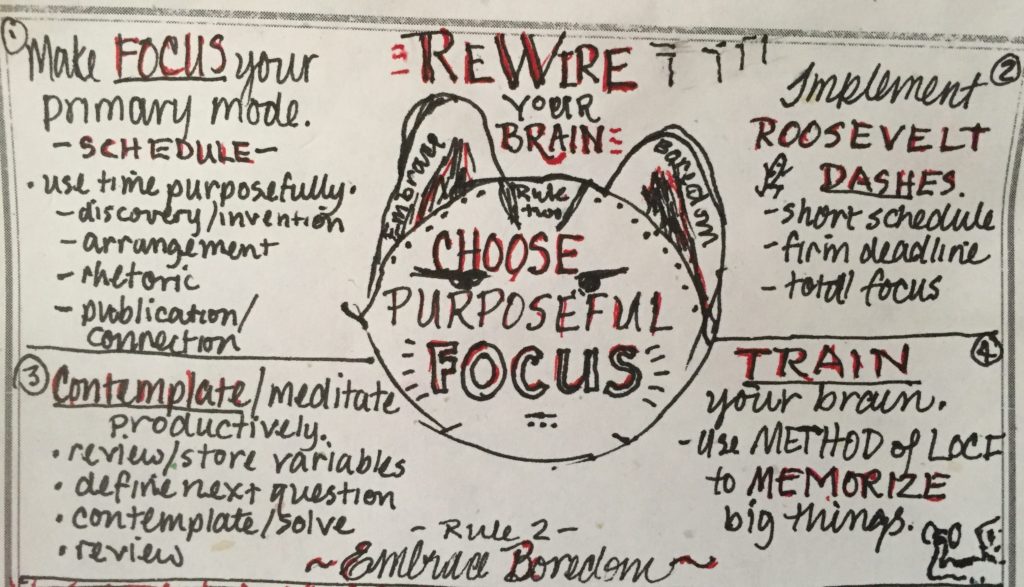 1
Make FOCUS your
primary mode.
- SCHEDULE -
• use time purposefully •
- discovery/invention
- arrangement
- rhetoric
- publication/
connection
REWIRE
YOUR
BRAIN
2
Implement
ROOSEVELT
DASHES.
- short schedule
- firm deadline
- total focus
Embrace
Rule
two
Boredom
CHOOSE
PURPOSEFUL
FOCUS
3
Contemplate/meditate
productively.
• review/store variables
• define next question
• contemplate/solve
• review
4
TRAIN
your brain.
- Use METHOD of LOCI
to MEMORIZE
big things.
- Rule 2 -
~ Embrace Boredom ~